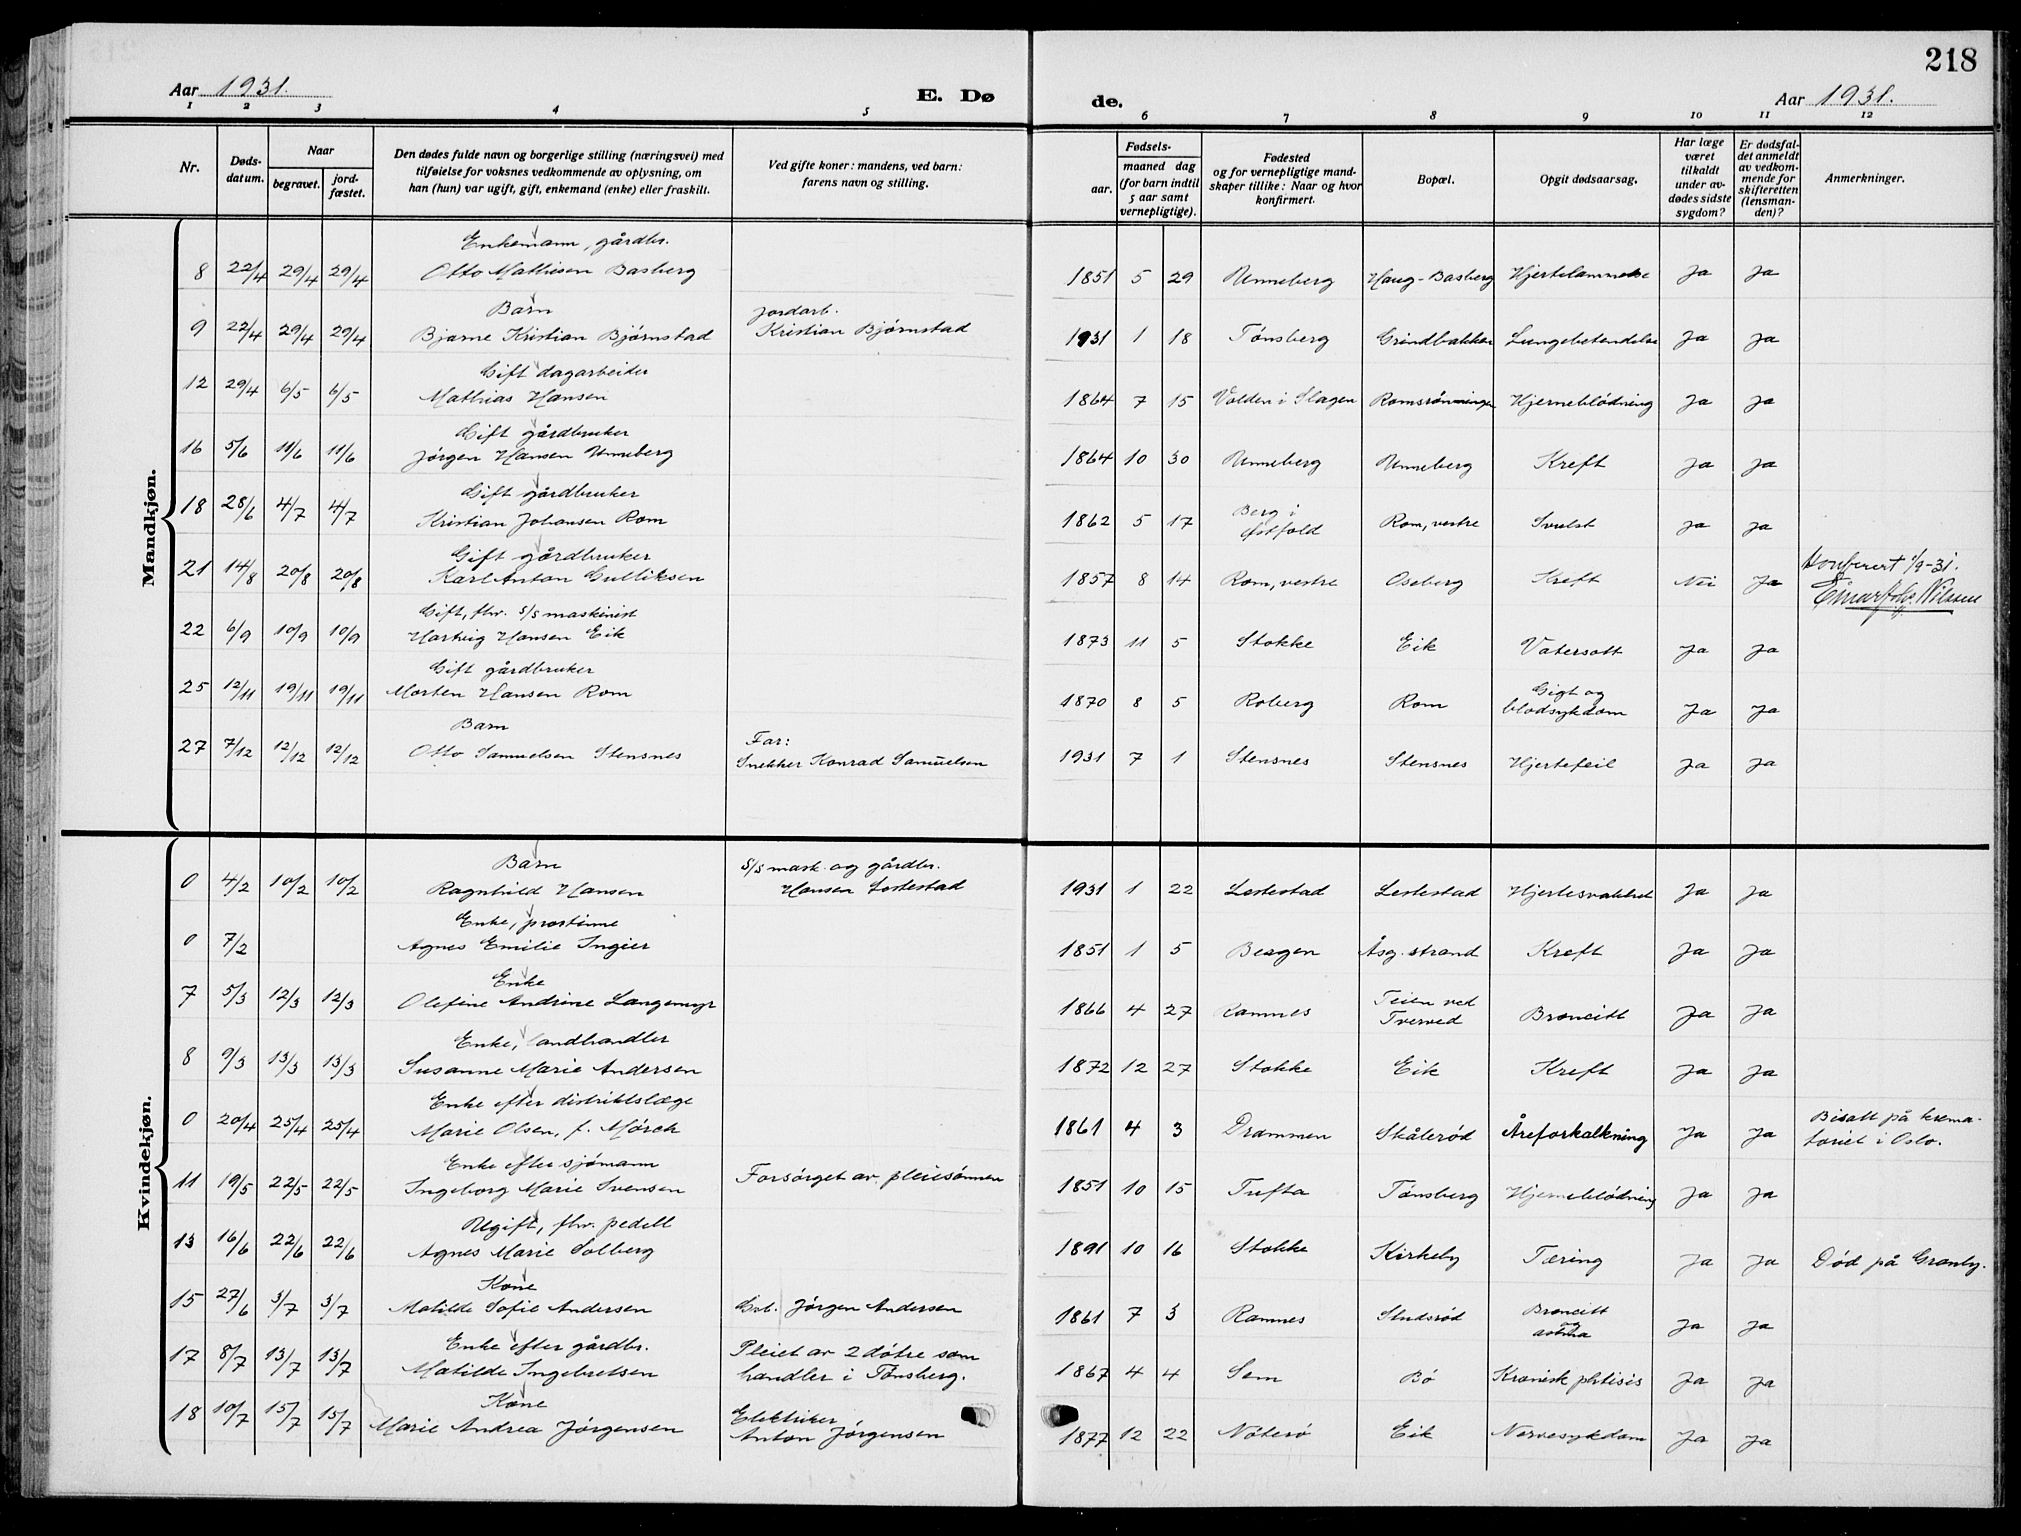 218
Aar 1931.
E. Dø
de.
Aar 1931.
1 2 3 4 5 6 7 8 9 10 11 12
Nr.
Døds-
datum.
Naar
begravet.
jord-
fæstet.
Den dødes fulde navn og borgerlige stilling (næringsvei) med
tilføielse for voksnes vedkommende av oplysning, om
han (hun) var ugift, gift, enkemand (enke) eller fraskilt.
Ved gifte koner: mandens, ved barn:
farens navn og stilling.
Fødsels-
aar.
maaned dag
(for barn indtil
5 aar samt
vernepligtige).
Fødested
og for vernepligtige mand-
skaper tillike: Naar og hvor
konfirmert.
Bopæl.
Opgit dødsaarsag.
Har læge
været
tilkaldt
under av-
dødes sidste
sygdom?
Er dødsfal-
det anmeldt
av vedkom-
mende for
skifteretten
(lensman-
den)?
Anmerkninger.
Mandkjøn.
Enkemann, gårdbr.
8 22/4 29/4 29/4 Otto Mathisen Basberg 1851 5 29 Unneberg Haug-Basberg Hjertelammelse Ja Ja
Barn jordarb.
9 22/4 29/4 29/4 Bjarne Kristian Bjørnstad Kristian Bjørnstad 1931 1 18 Tønsberg Grindbakken Lungebetendelse Ja Ja
Gift dagarbeider
12 29/4 6/5 6/5 Mathias Hansen 1864 7 15 Valden i Slagen Romsrønningen Hjerneblødning Ja Ja
Gift gårdbruker
16 5/6 11/6 11/6 Jørgen Hansen Unneberg 1864 10 30 Unneberg Unneberg Kreft Ja Ja
Gift gårdbruker
18 28/6 4/7 4/7 Kristian Johansen Rom 1862 5 17 Berg i Østfold Rom, vestre Svulst Ja Ja
Gift gårdbruker
21 14/8 20/8 20/8 Karl Anton Gulliksen 1857 8 14 Rom, vestre Oseberg Kreft Nei Ja
Konferert 1/9-31.
Nilssen
Gift, fhv. s/s maskinist
22 6/9 10/9 10/9 Hartvig Hansen Eik 1873 11 5 Stokke Eik Vatersott Ja Ja
Gift gårdbruker
25 12/11 19/11 19/11 Morten Hansen Rom 1870 8 5 Roberg Rom Gigt og blodsykdom Ja Ja
Barn Far:
27 7/12 12/12 12/12 Otto Samuelsen Stensnes Snekker Konrad Samuelsen 1931 7 1 Stensnes Stensnes Hjertefeil Ja Ja
Kvindekjøn.
Barn s/s mask. og gårdbr.
0 4/2 10/2 10/2 Ragnhild Hansen Hansen Lostestad 1931 1 22 Lestestad Lestestad Hjertesvakhet Ja Ja
Enke, prestinne
0 7/2 Agnes Emilie Ingier 1851 1 5 Bergen Åsg.strand Kreft Ja Ja
Enke
7 5/3 12/3 12/3 Olefine Andrine Langemyr 1866 4 27 Ramnes Teien ved Tverved Broncitt Ja Ja
Enke, landhandler
8 9/3 13/3 13/3 Susanne Marie Andersen 1872 12 27 Stokke Eik Kreft Ja Ja
Enke efter distriktslæge
0 20/4 25/4 25/4 Marie Olsen, f. Mørch 1861 4 3 Drammen Skålerød Åreforkalkning Ja Ja
Bisatt på krema-
toriet i Oslo.
Enke efter sjømann
11 19/5 22/5 22/5 Ingeborg Marie Svensen Forsørget av pleiesønnen 1851 10 15 Tufta Tønsberg Hjerneblødning Ja Ja
Ugift, fhv. pedell
13 16/6 22/6 22/6 Agnes Marie Solberg 1891 10 16 Stokke Kirkeby Tæring Ja Ja Død på Granly.
Kone
15 27/6 3/7 3/7 Matilde Sofie Andersen Grb. Jørgen Andersen 1861 7 3 Ramnes Studsrød Broncitt og astma Ja Ja
Enke efter gårdbr. Pleiet av 2 døtre som
17 8/7 13/7 13/7 Matilde Ingebretsen handler i Tønsberg. 1867 4 4 Sem Bø Kronisk phtisis Ja Ja
Kone Elektriker
18 10/7 15/7 15/7 Marie Andrea Jørgensen Anton Jørgensen 1877 12 22 Nøterø Eik Nervesykdom Ja Ja